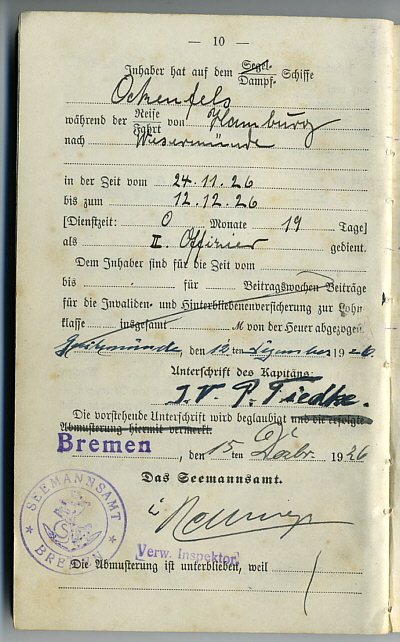 — 10 —
Inhaber hat auf dem Segel- Dampf- Schiffe
Ockenfels
während der Reise Fahrt von Hamburg
nach Wesermünde
in der Zeit vom 24.11.26
bis zum 12.12.26
[Dienstzeit: 0 Monate 19 Tage]
als II. Offizier gedient.
Dem Inhaber sind für die Zeit vom
bis für Beitragswochen Beiträge
für die Invaliden- und Hinterbliebenenversicherung zur Lohn
klasse insgesamt M von der Heuer abgezogen
den 12ten Dezember 1926.
Unterschrift des Kapitäns:
I.V. P. Tiedke.
Die vorstehende Unterschrift wird beglaubigt und die erfolgte
Abmusterung hiermit vermerkt.
Bremen, den 15ten Dzbr. 1926
Das Seemannsamt.
SEEMANNSAMT
BREMEN
Verw. Inspektor.
Die Abmusterung ist unterblieben, weil